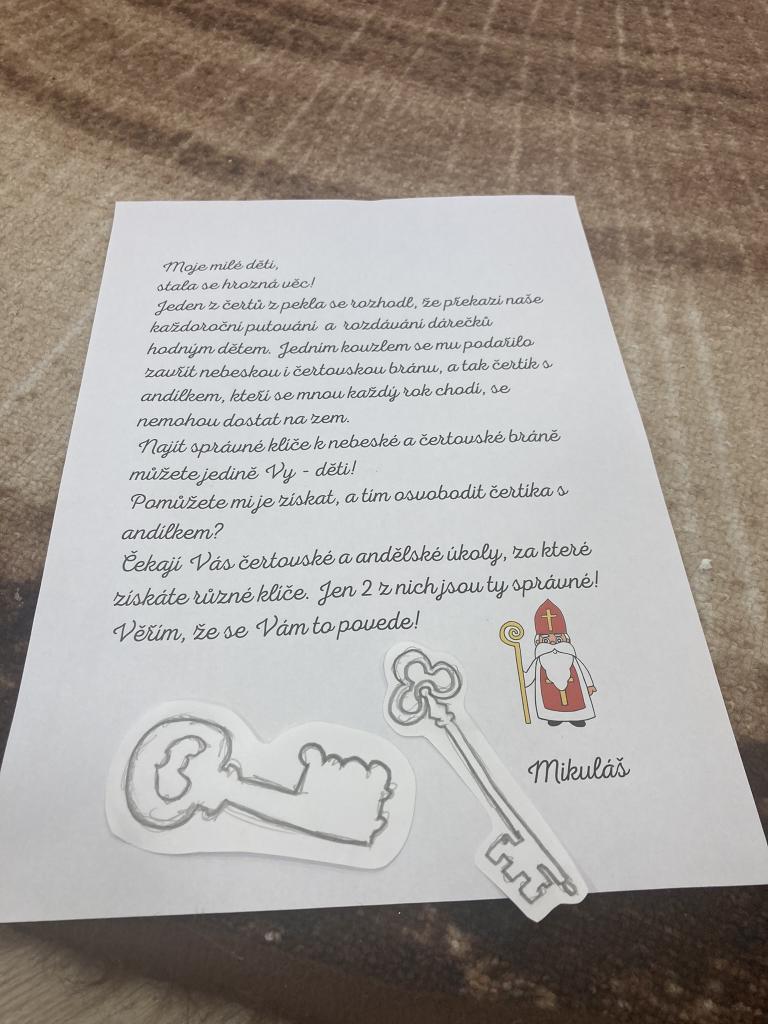 Moje milé děti,
stala se hrozná věc!
Jeden z čertů z pekla se rozhodl, že překazí naše
každoroční putování a rozdávání dárečků
hodným dětem. Jedním kouzlem se mu podařilo
zavřít nebeskou i čertovskou bránu, a tak čertík s
andílkem, kteří se mnou každý rok chodí, se
nemohou dostat na zem.
Najít správné klíče k nebeské a čertovské bráně
můžete jedině Vy - děti!
Pomůžete mi je získat, a tím osvobodit čertíka s
andílkem?
Čekají Vás čertovské a andělské úkoly, za které
získáte různé klíče. Jen 2 z nich jsou ty správné!
Věřím, že se Vám to povede!
Mikuláš